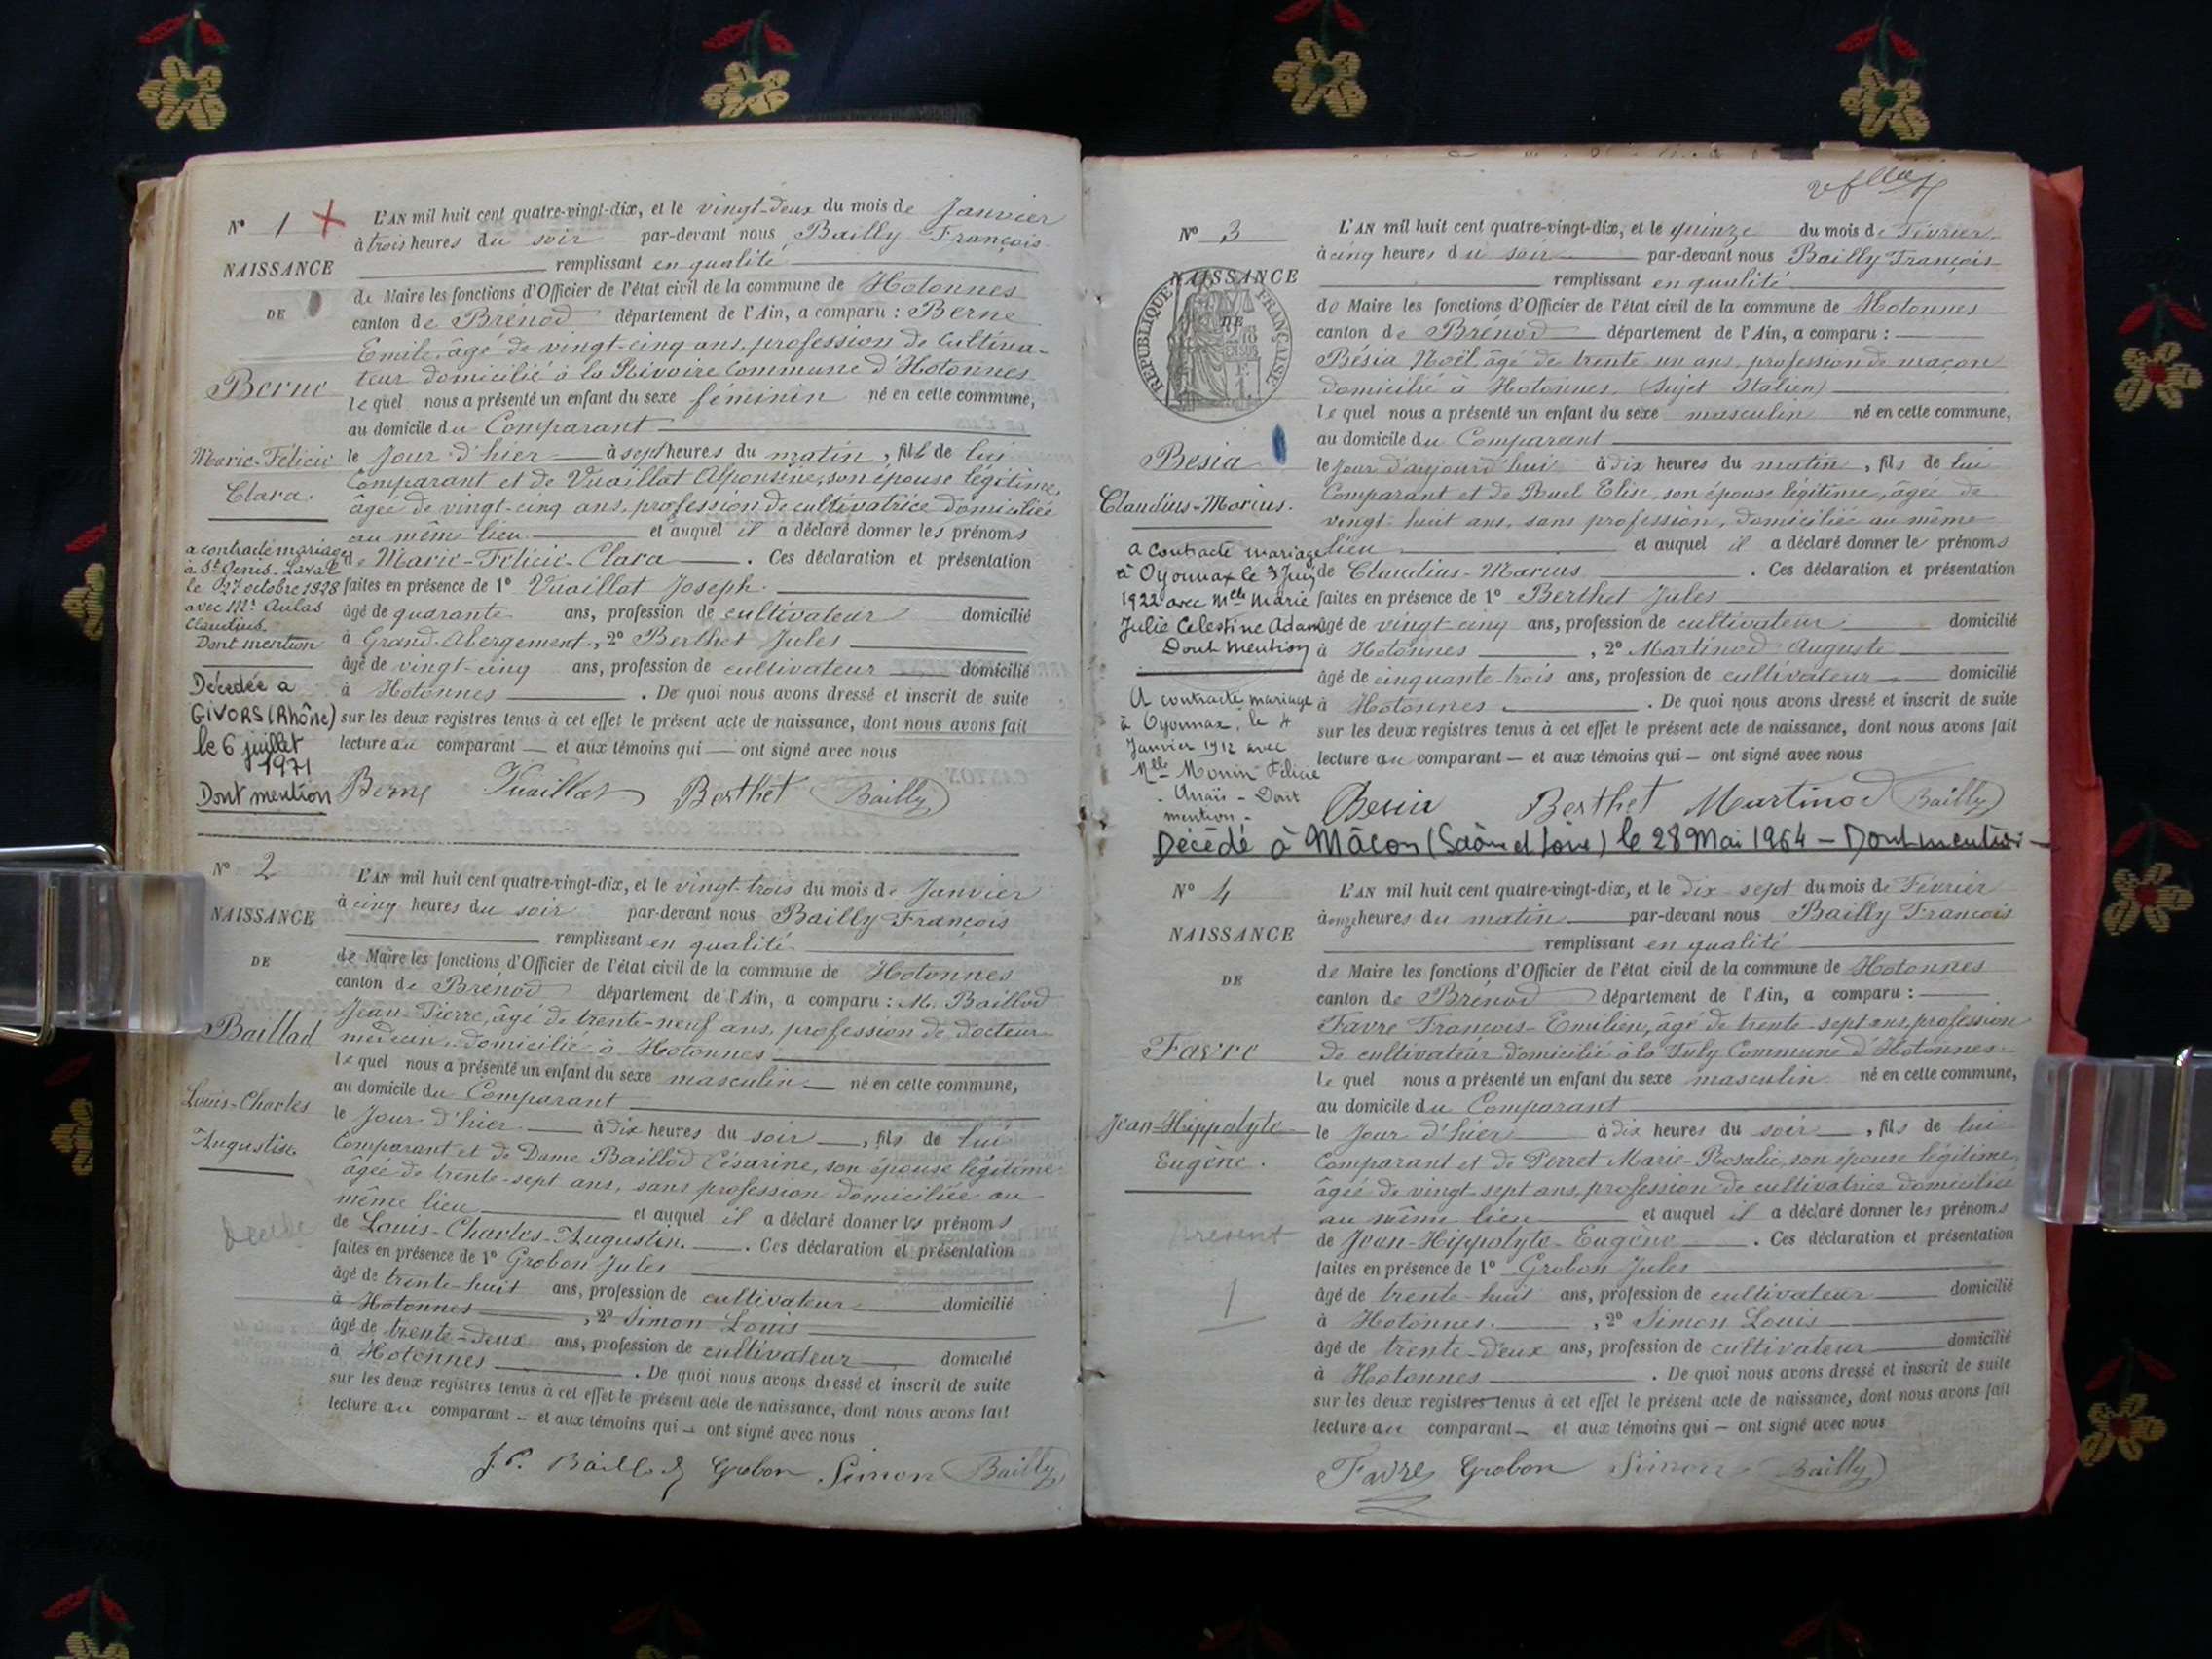 N° 1
NAISSANCE
DE
Berne
Marie-Félicie
Clara.
a contracté mariage
à St Genis-Laval
le 27 octobre 1928
avec Mr Aulas
Claudius.
Dont mention
Décédée à
GIVORS (Rhône)
le 6 juillet
1971
Dont mention
L'AN mil huit cent quatre-vingt-dix, et le vingt-deux du mois de Janvier
à trois heures du soir par-devant nous Bailly François
remplissant en qualité
de Maire les fonctions d'Officier de l'état civil de la commune de Hotonnes
canton de Brénod département de l'Ain, a comparu : Berne
Emile, âgé de vingt-cinq ans, profession de cultiva-
teur domicilié à la Rivoire Commune d'Hotonnes
lequel nous a présenté un enfant du sexe féminin né en cette commune,
au domicile du Comparant
le Jour d'hier à sept heures du matin, fils de lui
Comparant et de Vuaillat Alphonsine, son épouse légitime,
âgée de vingt-cinq ans, profession de cultivatrice domiciliée
au même lieu et auquel il a déclaré donner les prénoms
de Marie-Félicie-Clara. Ces déclaration et présentation
faites en présence de 1° Vuaillat Joseph
âgé de quarante ans, profession de cultivateur domicilié
à Grand-Abergement, 2° Berthet Jules
âgé de vingt-cinq ans, profession de cultivateur domicilié
à Hotonnes. De quoi nous avons dressé et inscrit de suite
sur les deux registres tenus à cet effet le présent acte de naissance, dont nous avons fait
lecture au comparant — et aux témoins qui — ont signé avec nous
Berne Vuaillat Berthet Bailly
N° 2
NAISSANCE
DE
Baillod
Louis-Charles
Augustin.
L'AN mil huit cent quatre-vingt-dix, et le vingt-trois du mois de Janvier
à cinq heures du soir par-devant nous Bailly François
remplissant en qualité
de Maire les fonctions d'Officier de l'état civil de la commune de Hotonnes
canton de Brénod département de l'Ain, a comparu : M. Baillod
Jean-Pierre, âgé de trente-neuf ans, profession de docteur
médecin, domicilié à Hotonnes
lequel nous a présenté un enfant du sexe masculin né en cette commune,
au domicile du Comparant
le Jour d'hier à dix heures du soir, fils de lui
Comparant et de Dame Baillod Césarine, son épouse légitime
âgée de trente-sept ans, sans profession domiciliée au
même lieu et auquel il a déclaré donner les prénoms
de Louis-Charles-Augustin. Ces déclaration et présentation
faites en présence de 1° Grobon Jules
âgé de trente-huit ans, profession de cultivateur domicilié
à Hotonnes, 2° Simon Louis
âgé de trente-deux ans, profession de cultivateur domicilié
à Hotonnes. De quoi nous avons dressé et inscrit de suite
sur les deux registres tenus à cet effet le présent acte de naissance, dont nous avons fait
lecture au comparant — et aux témoins qui — ont signé avec nous
J. P. Baillod Grobon Simon Bailly
N° 3
NAISSANCE
DE
RÉPUBLIQUE FRANÇAISE
Besia
Claudius-Marius.
a contracté mariage
à Oyonnax le 3 Juin
1922 avec Melle Marie
Julie Celestine Adam
Dont mention
A contracté mariage
à Oyonnax, le 4
Janvier 1912 avec
Mlle Monin Félicie
Anaïs - Dont
mention.
L'AN mil huit cent quatre-vingt-dix, et le quinze du mois de Février
à cinq heures du soir par-devant nous Bailly François
remplissant en qualité
de Maire les fonctions d'Officier de l'état civil de la commune de Hotonnes
canton de Brénod département de l'Ain, a comparu :
Bésia Noël, âgé de trente un ans, profession de maçon
domicilié à Hotonnes. (Sujet Italien)
lequel nous a présenté un enfant du sexe masculin né en cette commune,
au domicile du Comparant
le Jour d'aujourd'hui à dix heures du matin, fils de lui
Comparant et de Ruel Elise, son épouse légitime, âgée de
vingt-huit ans, sans profession, domiciliée au même
lieu et auquel il a déclaré donner le prénoms
de Claudius-Marius. Ces déclaration et présentation
faites en présence de 1° Berthet Jules
âgé de vingt cinq ans, profession de cultivateur domicilié
à Hotonnes, 2° Martinod Auguste
âgé de cinquante-trois ans, profession de cultivateur domicilié
à Hotonnes. De quoi nous avons dressé et inscrit de suite
sur les deux registres tenus à cet effet le présent acte de naissance, dont nous avons fait
lecture au comparant — et aux témoins qui — ont signé avec nous
Besia Berthet Martinod Bailly
Décédé à Mâcon (Saône et Loire) le 28 Mai 1964 — Dont mention —
N° 4
NAISSANCE
DE
Favre
Jean-Hippolyte
Eugène.
présent
1
L'AN mil huit cent quatre-vingt-dix, et le dix sept du mois de Février
à onze heures du matin par-devant nous Bailly François
remplissant en qualité
de Maire les fonctions d'Officier de l'état civil de la commune de Hotonnes
canton de Brénod département de l'Ain, a comparu :
Favre François-Emilien, âgé de trente-sept ans, profession
de cultivateur domicilié à la Tuly Commune d'Hotonnes
lequel nous a présenté un enfant du sexe masculin né en cette commune,
au domicile du Comparant
le Jour d'hier à dix heures du soir, fils de lui
Comparant et de Perret Marie-Rosalie, son épouse légitime,
âgée de vingt sept ans, profession de cultivatrice domiciliée
au même lieu et auquel il a déclaré donner les prénoms
de Jean-Hippolyte-Eugène. Ces déclaration et présentation
faites en présence de 1° Grobon Jules
âgé de trente huit ans, profession de cultivateur domicilié
à Hotonnes., 2° Simon Louis
âgé de trente-deux ans, profession de cultivateur domicilié
à Hotonnes. De quoi nous avons dressé et inscrit de suite
sur les deux registres tenus à cet effet le présent acte de naissance, dont nous avons fait
lecture au comparant — et aux témoins qui — ont signé avec nous
Favre Grobon Simon Bailly